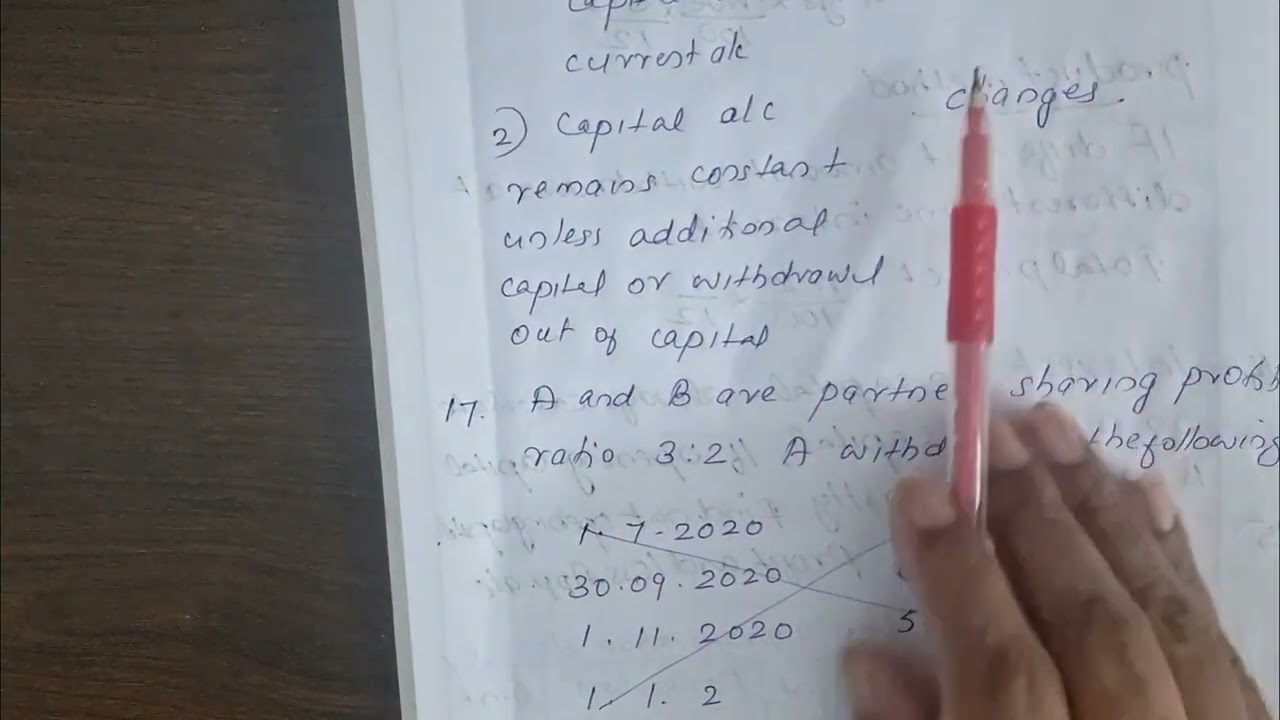 current a/c
2) Capital a/c changes.
remains constant
unless additional
capital or withdrawl
out of capital
17. A and B are partne sharing profit
ratio 3:2 A withd the following
1. 7-2020
30.09.2020
1. 11. 2020 5
1. 1. 2